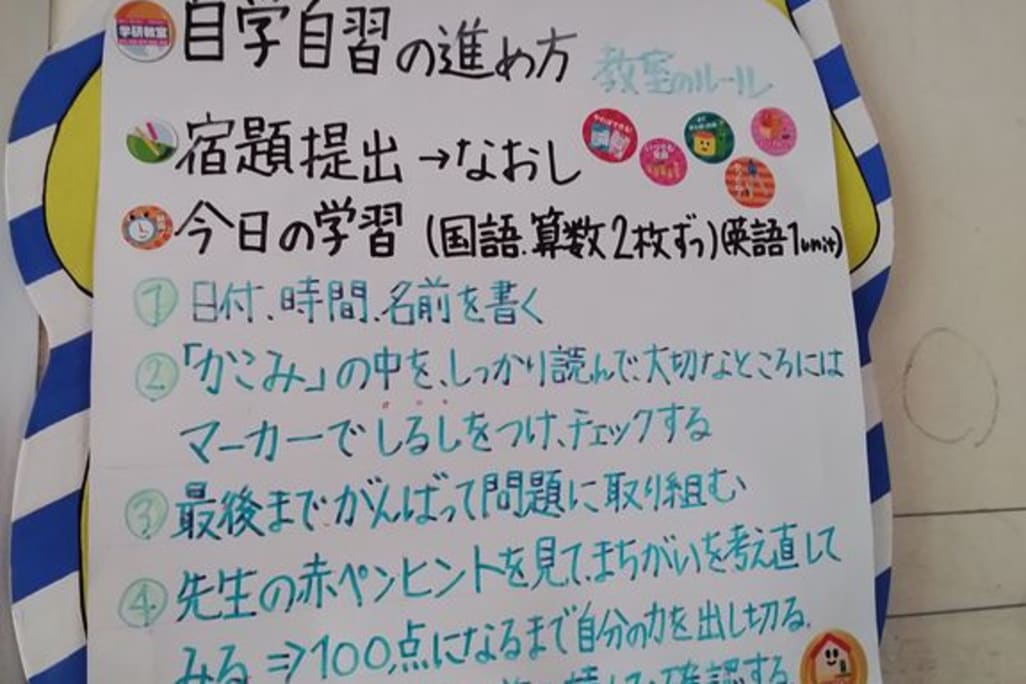 学研教室
自学自習の進め方
教室のルール
宿題提出→なおし
今日の学習(国語.算数2枚ずつ)(英語1unit)
① 日付、時間、名前を書く
② 「かこみ」の中を、しっかり読んで、大切なところには
マーカーでしるしをつけ、チェックする
③ 最後までがんばって問題に取り組む
④ 先生の赤ペンヒントを見て、まちがいを考え直して
みる⇒100点になるまで自分の力を出し切る。
確認する。